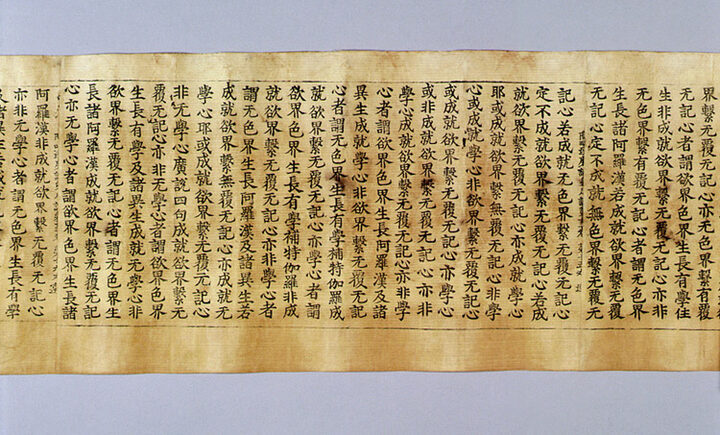 界繫无覆无記心亦无色界繫有覆
无記心者謂欲界色界生長有學住
生非成就欲界繫无覆无記心亦非
无色界繫有覆无記心者謂无色界
生長諸阿羅漢若成就欲界繫无覆
无記心定不成就無色界繫无覆无
記心若成就无色界繫无覆无記心
定不成就欲界繫无覆无記心若成
就欲界繫无覆无記心亦成就學心
耶或成就欲界繫無覆无記心非學
心或成就學心非欲界繫无覆无記心
或成就欲界繫无覆无記心亦學心
或非成就欲界繫无覆无記心亦非
學心成就欲界繫无覆无記心亦非學
心者謂欲界色界生長阿羅漢及諸
異生成就學心非欲界繫无覆无記
心者謂无色界生長有學補特伽羅成
就欲界繫无覆无記心亦學心者謂
欲界色界生長有學補特伽羅非成
就欲界繫无覆无記心亦非學心者
謂无色界生長阿羅漢及諸異生若
成就欲界繫無覆无記心亦成就无
學心耶或成就欲界繫无覆无記心
非无學心廣說四句成就欲界繫无
覆无記心亦非无學心者謂欲界色界
生長有學及諸異生成就无學心非
欲界繫无覆无記心者謂无色界生
長諸阿羅漢成就欲界繫无覆无記
心亦无學心者謂欲界色界生長諸
阿羅漢非成就欲界繫无覆无記心
亦非无學心者謂无色界生長有學